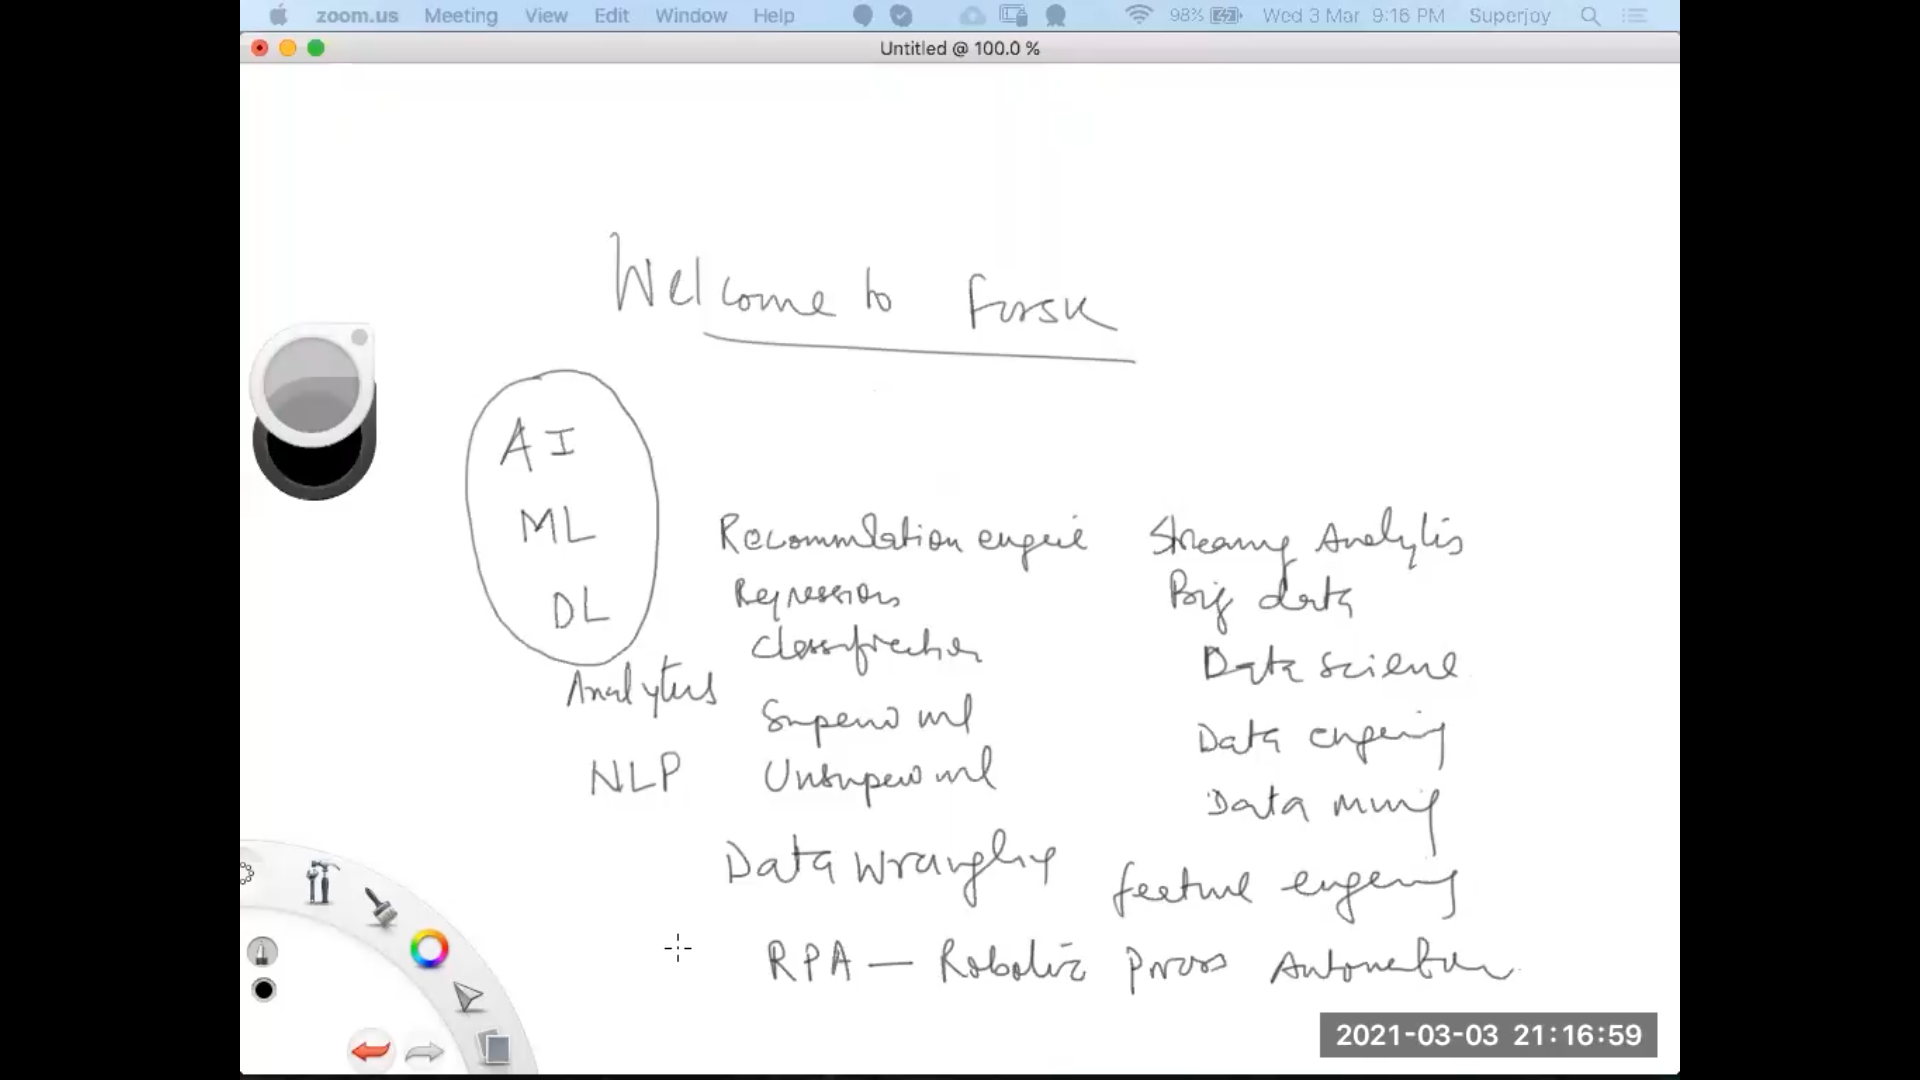 zoom.us Meeting View Edit Window Help 98% Wed 3 Mar 9:16 PM Superjoy
Untitled @ 100.0 %
Welcome to Forsk
AI
ML
DL
Analytics
NLP
Recommdation engine
Regression
Classification
Superv ml
Unsuperv ml
Data Wrangling
Streaming Analytics
Big data
Data science
Data engineering
Data mining
feature engineering
RPA — Robotic Process Automation
2021-03-03 21:16:59